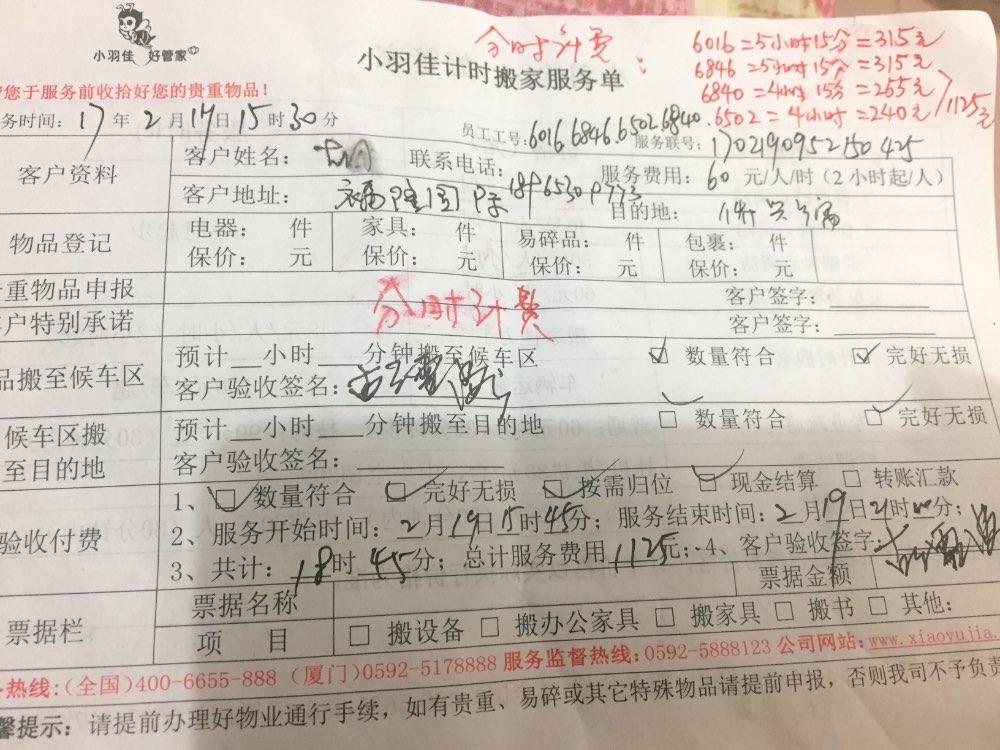 小羽佳 好管家
分时计费:
6016=5小时15分=315元
6846=5小时15分=315元
6840=4小时15分=255元
6502=4小时=240元
1125元
小羽佳计时搬家服务单
您于服务前收拾好您的贵重物品!
务时间: 17年2月19日15时30分
员工工号: 6016 6846 6502 6840
服务联号: 170219095250425
客户资料
客户姓名:
联系电话:
服务费用: 60 元/人/时 (2小时起/人)
客户地址:
目的地:
物品登记
电器: 件 家具: 件 易碎品: 件 包裹: 件
保价: 元 保价: 元 保价: 元 保价: 元
重物品申报
客户签字:
户特别承诺
分时计费
客户签字:
品搬至候车区
预计 小时 分钟搬至候车区
数量符合 完好无损
客户验收签名:
候车区搬
至目的地
预计 小时 分钟搬至目的地
数量符合 完好无损
客户验收签名:
验收付费
1、 数量符合 完好无损 按需归位 现金结算 转账汇款
2、服务开始时间: 2月19日15时45分; 服务结束时间: 2月19日21时00分;
3、共计: 18时45分; 总计服务费用1125元; 4、客户验收签字:
票据栏
票据名称
票据金额
项 目
搬设备 搬办公家具 搬家具 搬书 其他:
热线:(全国)400-6655-888 (厦门)0592-5178888 服务监督热线:0592-5888123 公司网站:www.xiaoyujia.
馨提示: 请提前办理好物业通行手续,如有贵重、易碎或其它特殊物品请提前申报,否则我司不予负责